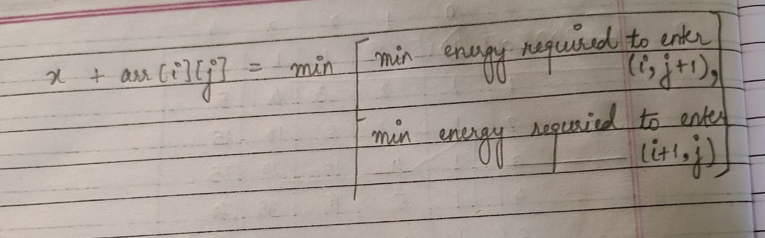 x + arr[i][j] = min [ min energy required to enter
(i, j+1),
min energy requried to enter
(i+1, j) ]